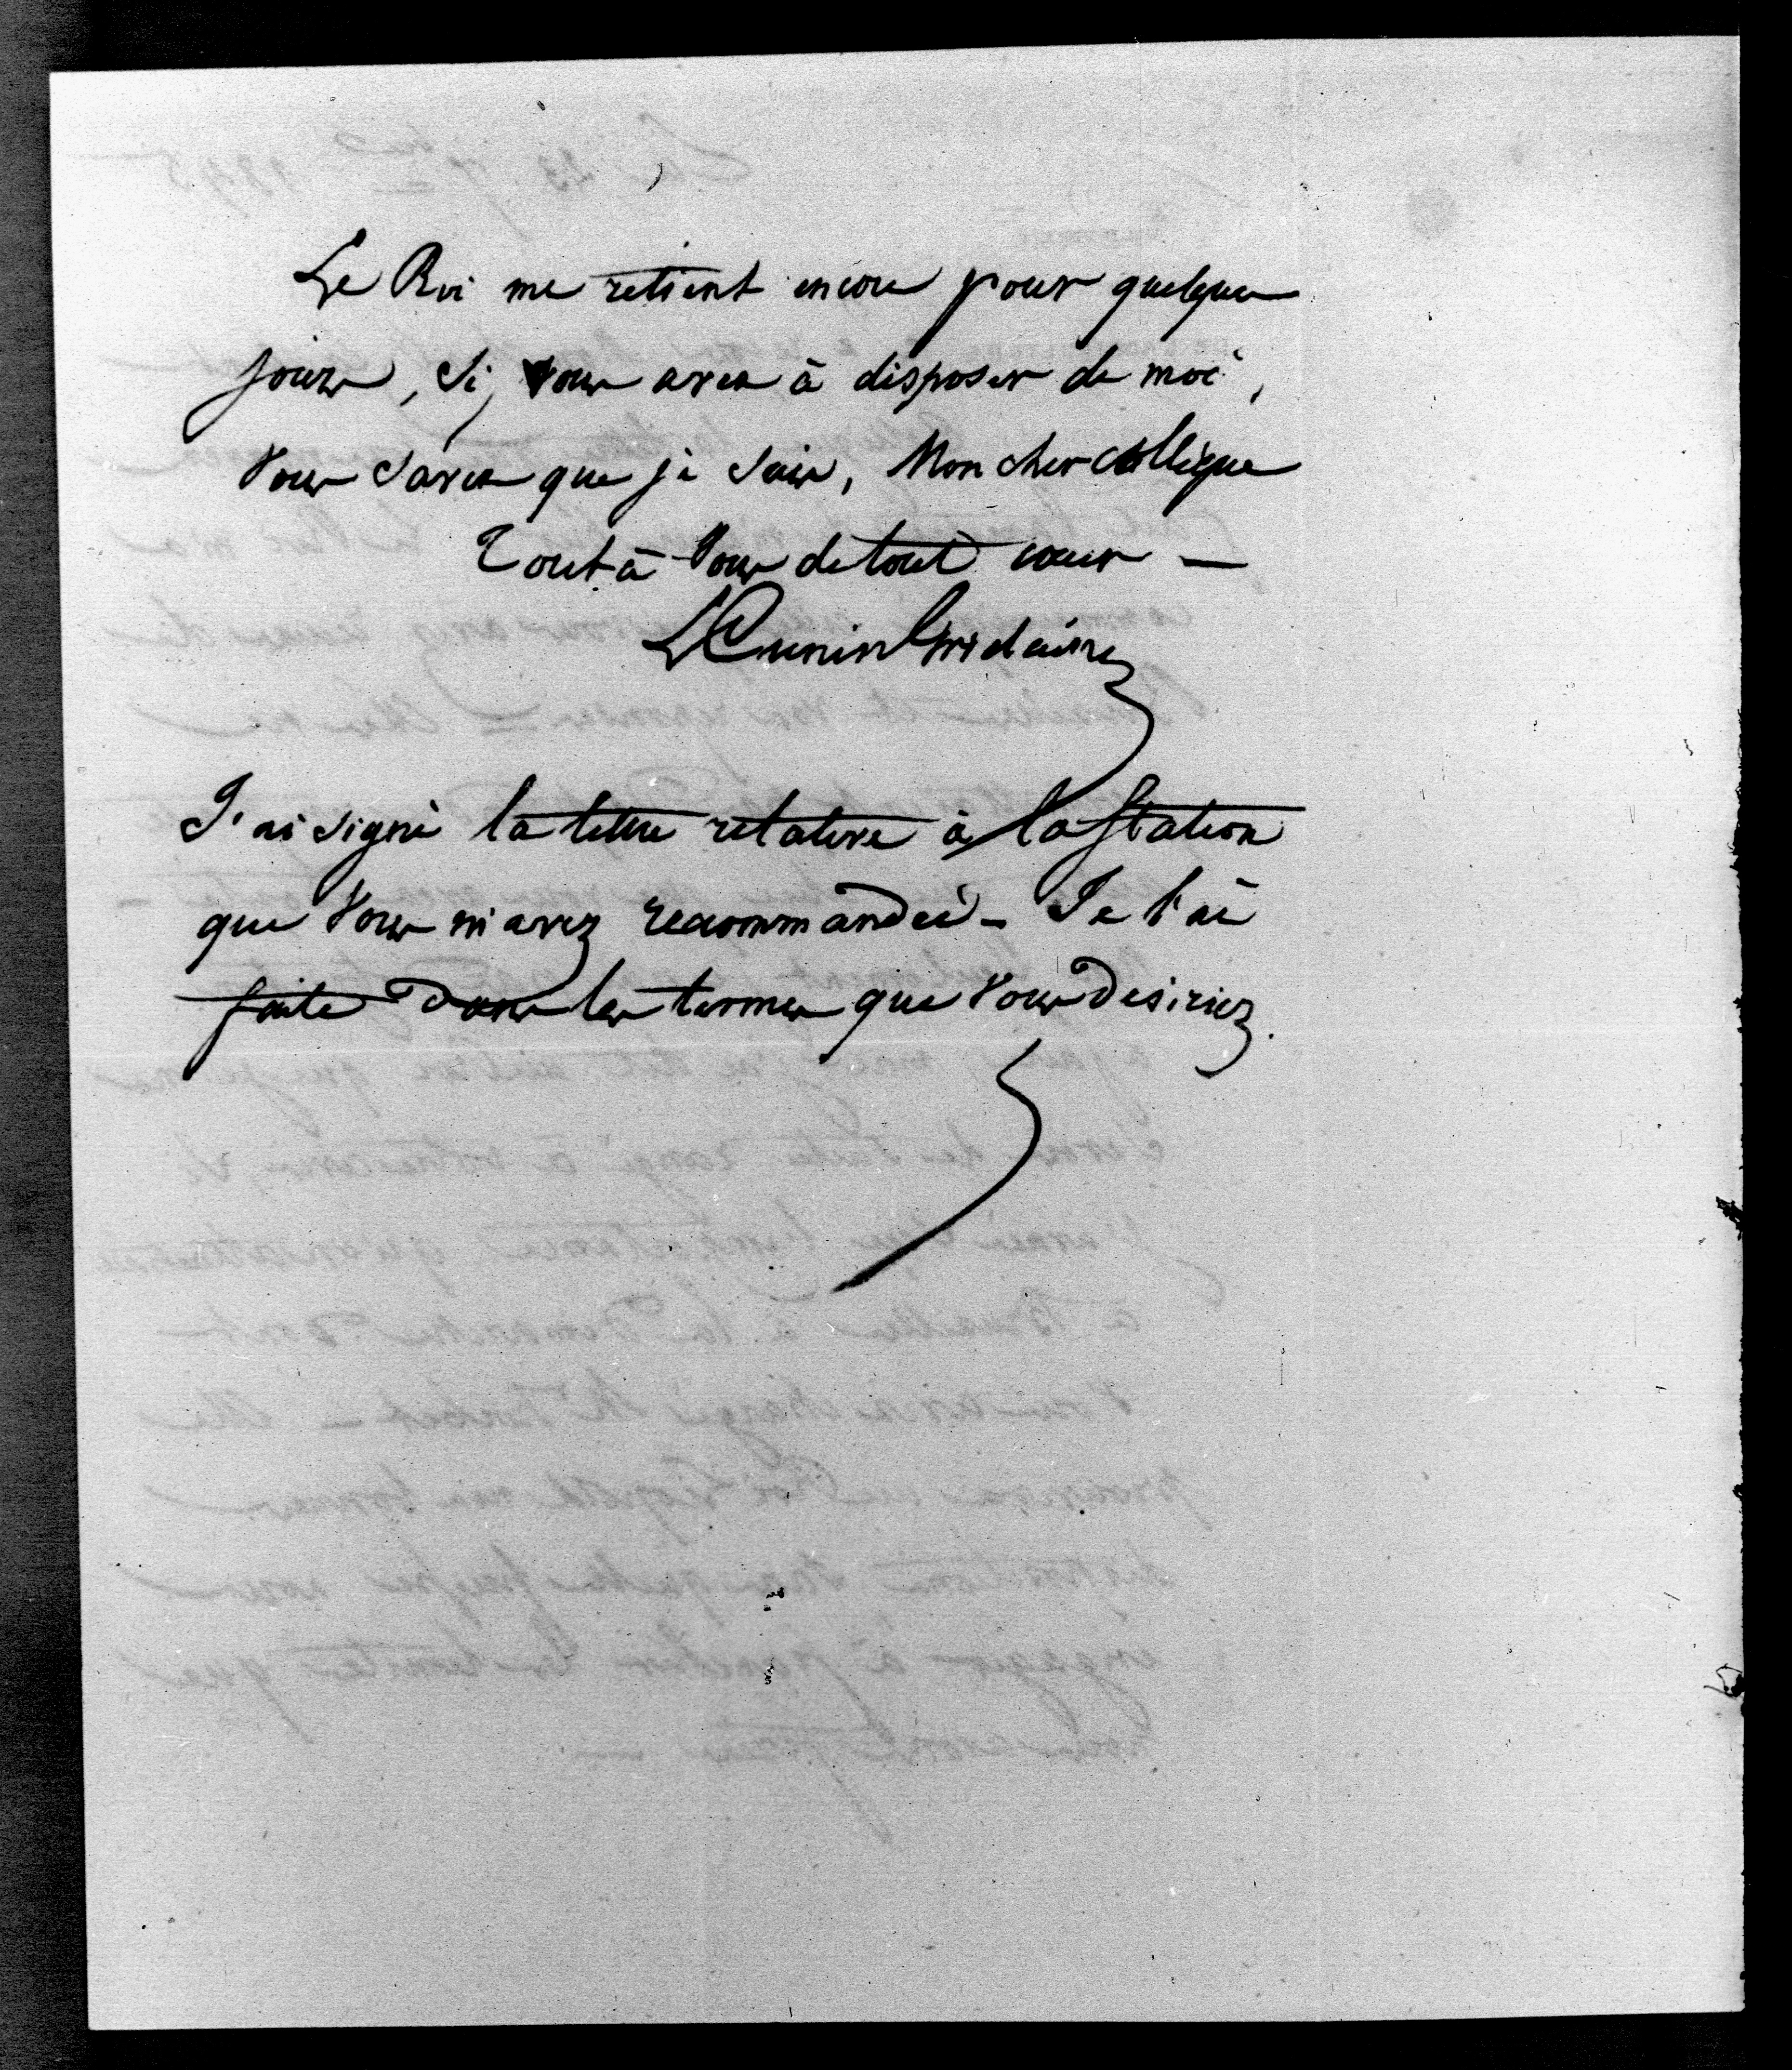 Le Roi me retient encore pour quelques
jours, Si vous avez à disposer de moi,
Vous Savez que je Suis, Mon cher collègue
Tout à Vous de tout cœur —
L Cunin Gridaine
J'ai Signé la lettre relative à la Station
que Vous m'avez recommandée - Je l'ai
faite dans les termes que Vous désiriez.